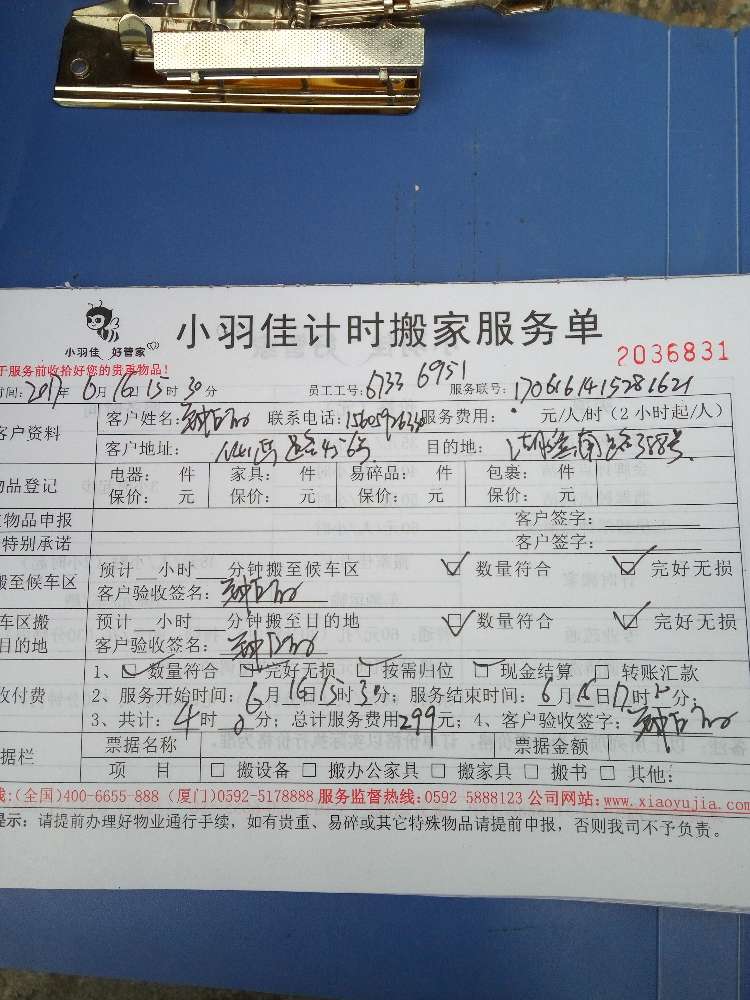 小羽佳 好管家
小羽佳计时搬家服务单
2036831
于服务前收拾好您的贵重物品!
时间: 2017年 6月 16日 15时 30分 员工工号: 6733 6951 服务联号: 1706161415281621
客户资料
客户姓名: 联系电话: 服务费用: 元/人/时(2小时起/人)
客户地址: 456号 目的地: 388号
物品登记
电器: 件 家具: 件 易碎品: 件 包裹: 件
保价: 元 保价: 元 保价: 元 保价: 元
物品申报 客户签字:
特别承诺 客户签字:
搬至候车区
预计 小时 分钟搬至候车区 ☑ 数量符合 ☑ 完好无损
客户验收签名:
车区搬
目的地
预计 小时 分钟搬至目的地 ☑ 数量符合 ☑ 完好无损
客户验收签名:
收付费
1、☑ 数量符合 ☑ 完好无损 ☑ 按需归位 ☑ 现金结算 □ 转账汇款
2、服务开始时间: 6月16日15时30分; 服务结束时间: 6月 日17时 分;
3、共计: 4时 0分; 总计服务费用299元; 4、客户验收签字:
据栏
票据名称 票据金额
项 目 □ 搬设备 □ 搬办公家具 □ 搬家具 □ 搬书 □ 其他:
线:(全国)400-6655-888 (厦门)0592-5178888 服务监督热线:0592 5888123 公司网站:www.xiaoyujia.com
提示: 请提前办理好物业通行手续,如有贵重、易碎或其它特殊物品请提前申报,否则我司不予负责。